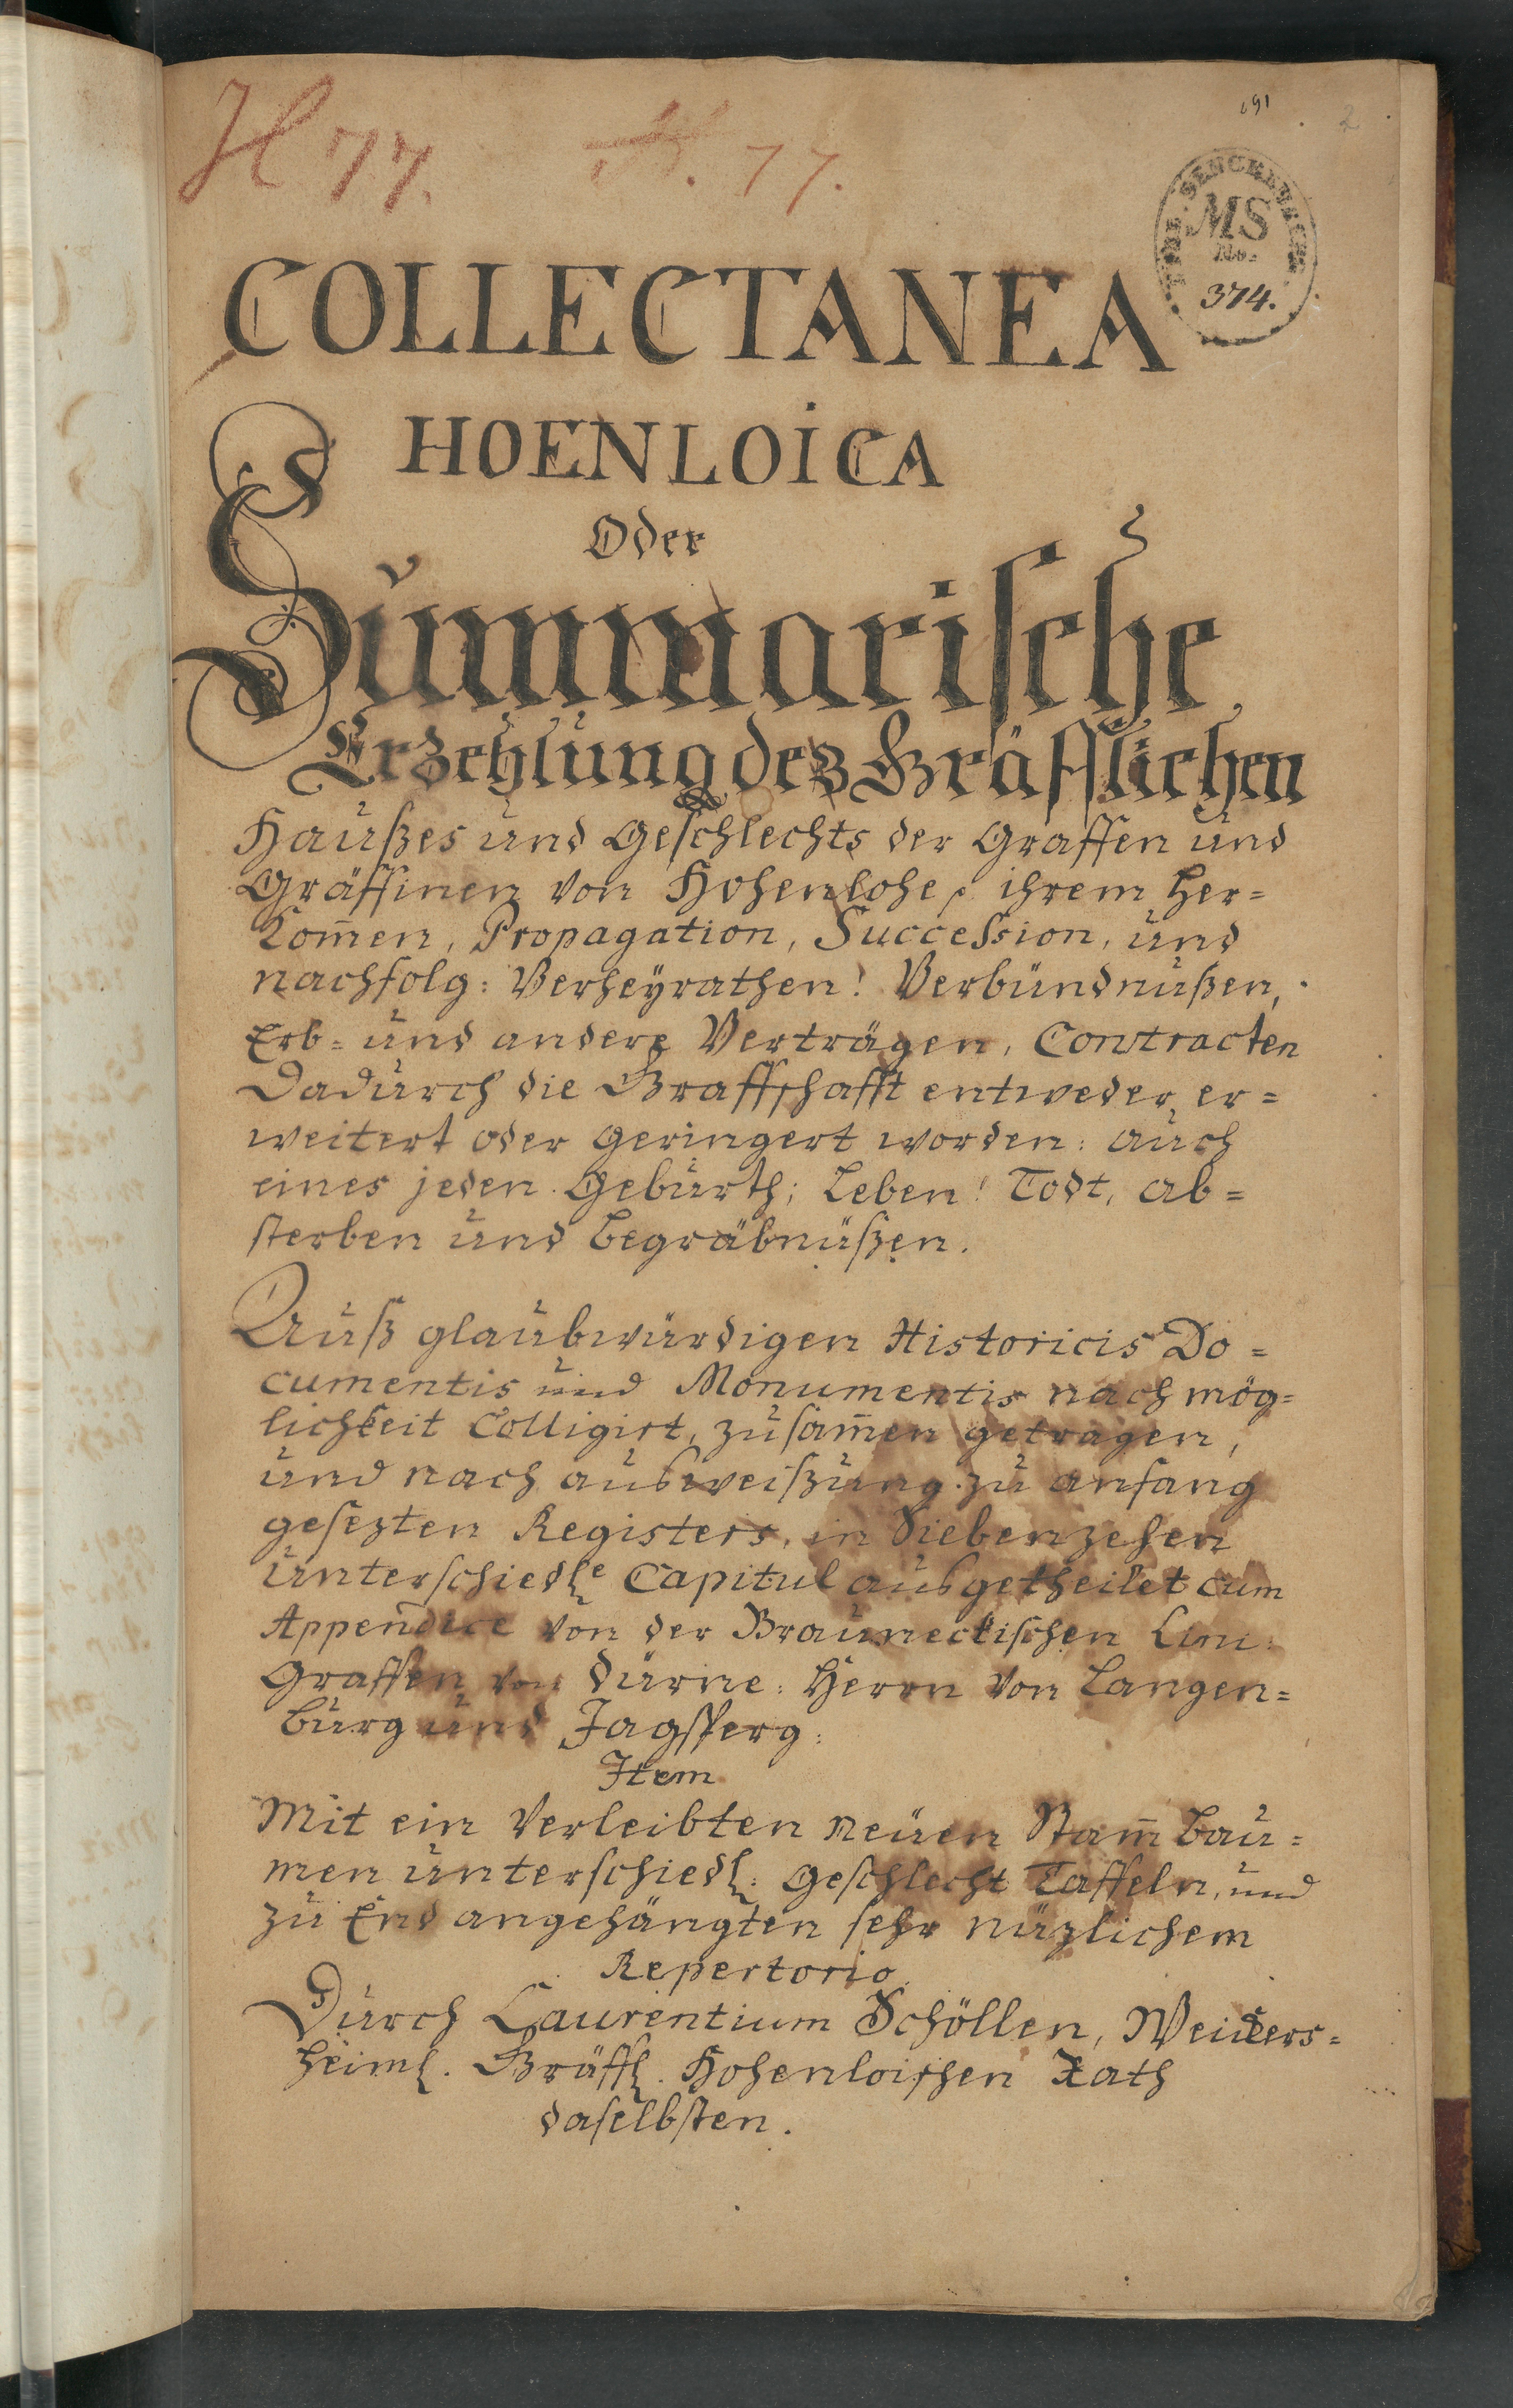 H 77. H. 77.
691
2
BIBL. SENCKENBERG
MS
No.
374.
COLLECTANEA
HOENLOICA
Oder
Summarische
Erzehlung dez Gräfflichen
Haußes und Geschlechts der Graffen und
Gräffinen von Hohenlohe, ihrem Her=
kom̄en, Propagation, Succession, und
nachfolg: Verheÿrathen! Verbündnußen,
Erb= und andere Verträgen, Contracten
Dadurch die Graffschafft entweder er=
weitert oder geringert worden: auch
eines jeden Geburth; Leben! Todt, ab=
sterben und begräbnüßen.
Auß glaubwürdigen Historicis Do=
cumentis und Monumentis nach mög=
lichkeit Colligirt, zusam̄en getragen,
und nach ausweißung zu anfang
gesezten Registers, in Siebenzehen
unterschiedle Capitul ausgetheilet cum
Appendice von der Brauneckischen Lini:
Graffen von Dürne: Herrn von Langen=
burg und Jagstberg:
Item
Mit ein Verleibten neuen Stam̄ bau=
men unterschiedl: geschlecht Taffeln, und
zu End angehängten sehr nüzlichem
Repertorio
Durch Laurentium Schöllen, Weickers=
heiml. Gräffl. Hohenloischen Rath
daselbsten.